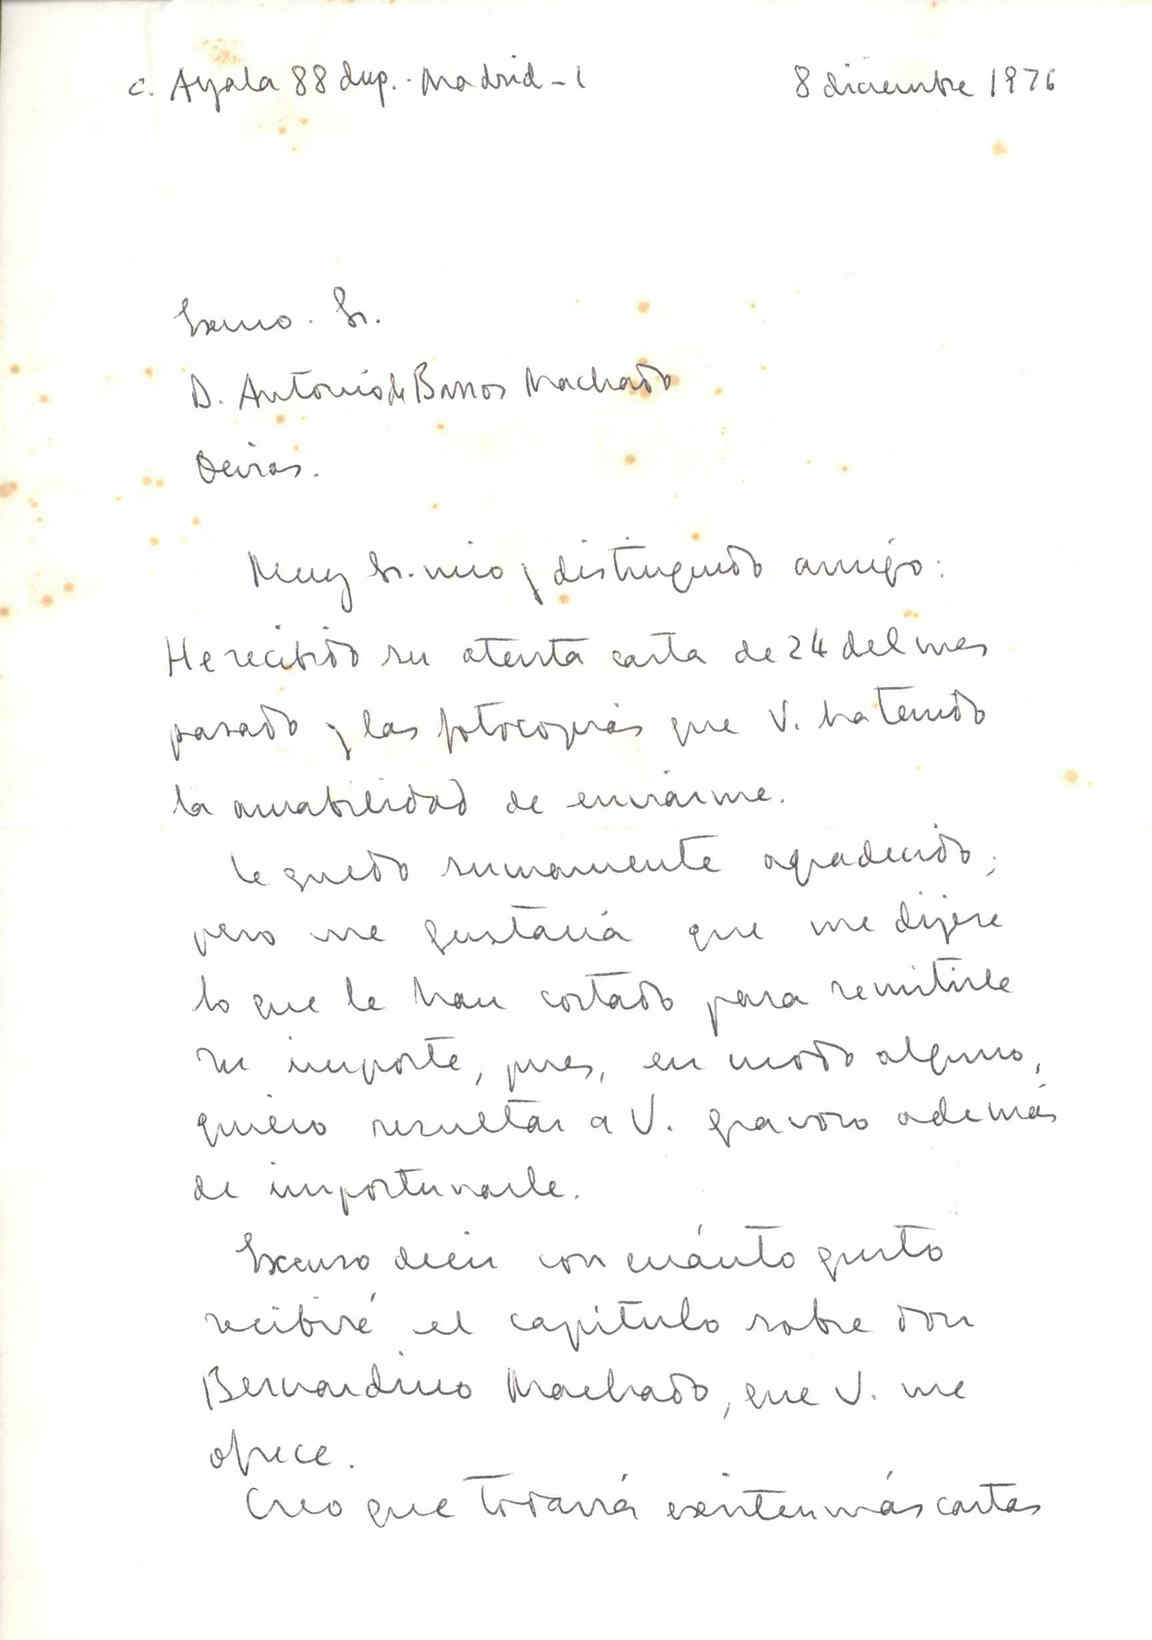 c. Ayala 88 dup. - Madrid - 1 8 diciembre 1976
Excmo. Sr.
D. Antonio de Barros Machado
Oeiras.
Muy Sr. mio y distinguido amigo:
He recibido su atenta carta de 24 del mes
pasado y las fotocopias que V. ha tenido
la amabilidad de enviarme.
Le quedo sumamente agradecido;
pero me gustaría que me dijere
lo que le han costado para remitirle
su importe, pues, en modo alguno,
quiero resultar a V. gravoso además
de importunarle.
Excuso decir con cuánto gusto
recibiré el capítulo sobre don
Bernardino Machado, que V. me
ofrece.
Creo que todavía existen más cartas